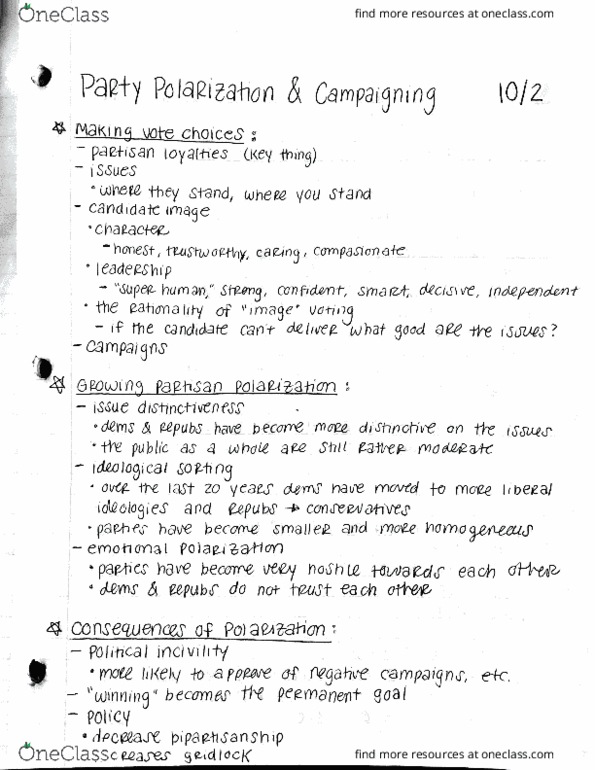 OneClass
find more resources at oneclass.com
Party Polarization & Campaigning 10/2
☆ Making vote choices:
- partisan loyalties (key thing)
- issues
• where they stand, where you stand
- candidate image
• character
- honest, trustworthy, caring, compasionate
• leadership
- "super human," strong, confident, smart, decisive, independent
• the rationality of "image" voting
- if the candidate can't deliver what good are the issues?
- campaigns
☆ Growing partisan polarization:
- issue distinctiveness
• dems & repubs have become more distinctive on the issues
• the public as a whole are still rather moderate
- ideological sorting
• over the last 20 years dems have moved to more liberal
ideologies and repubs → conservatives
• parties have become smaller and more homogeneous
- emotional polarization
• parties have become very hostile towards each other
• dems & repubs do not trust each other
☆ Consequences of Polarization:
- political incivility
• more likely to approve of negative campaigns, etc.
- "winning" becomes the permanent goal
- policy
• decrease bipartisanship
OneClass creases gridlock
find more resources at oneclass.com